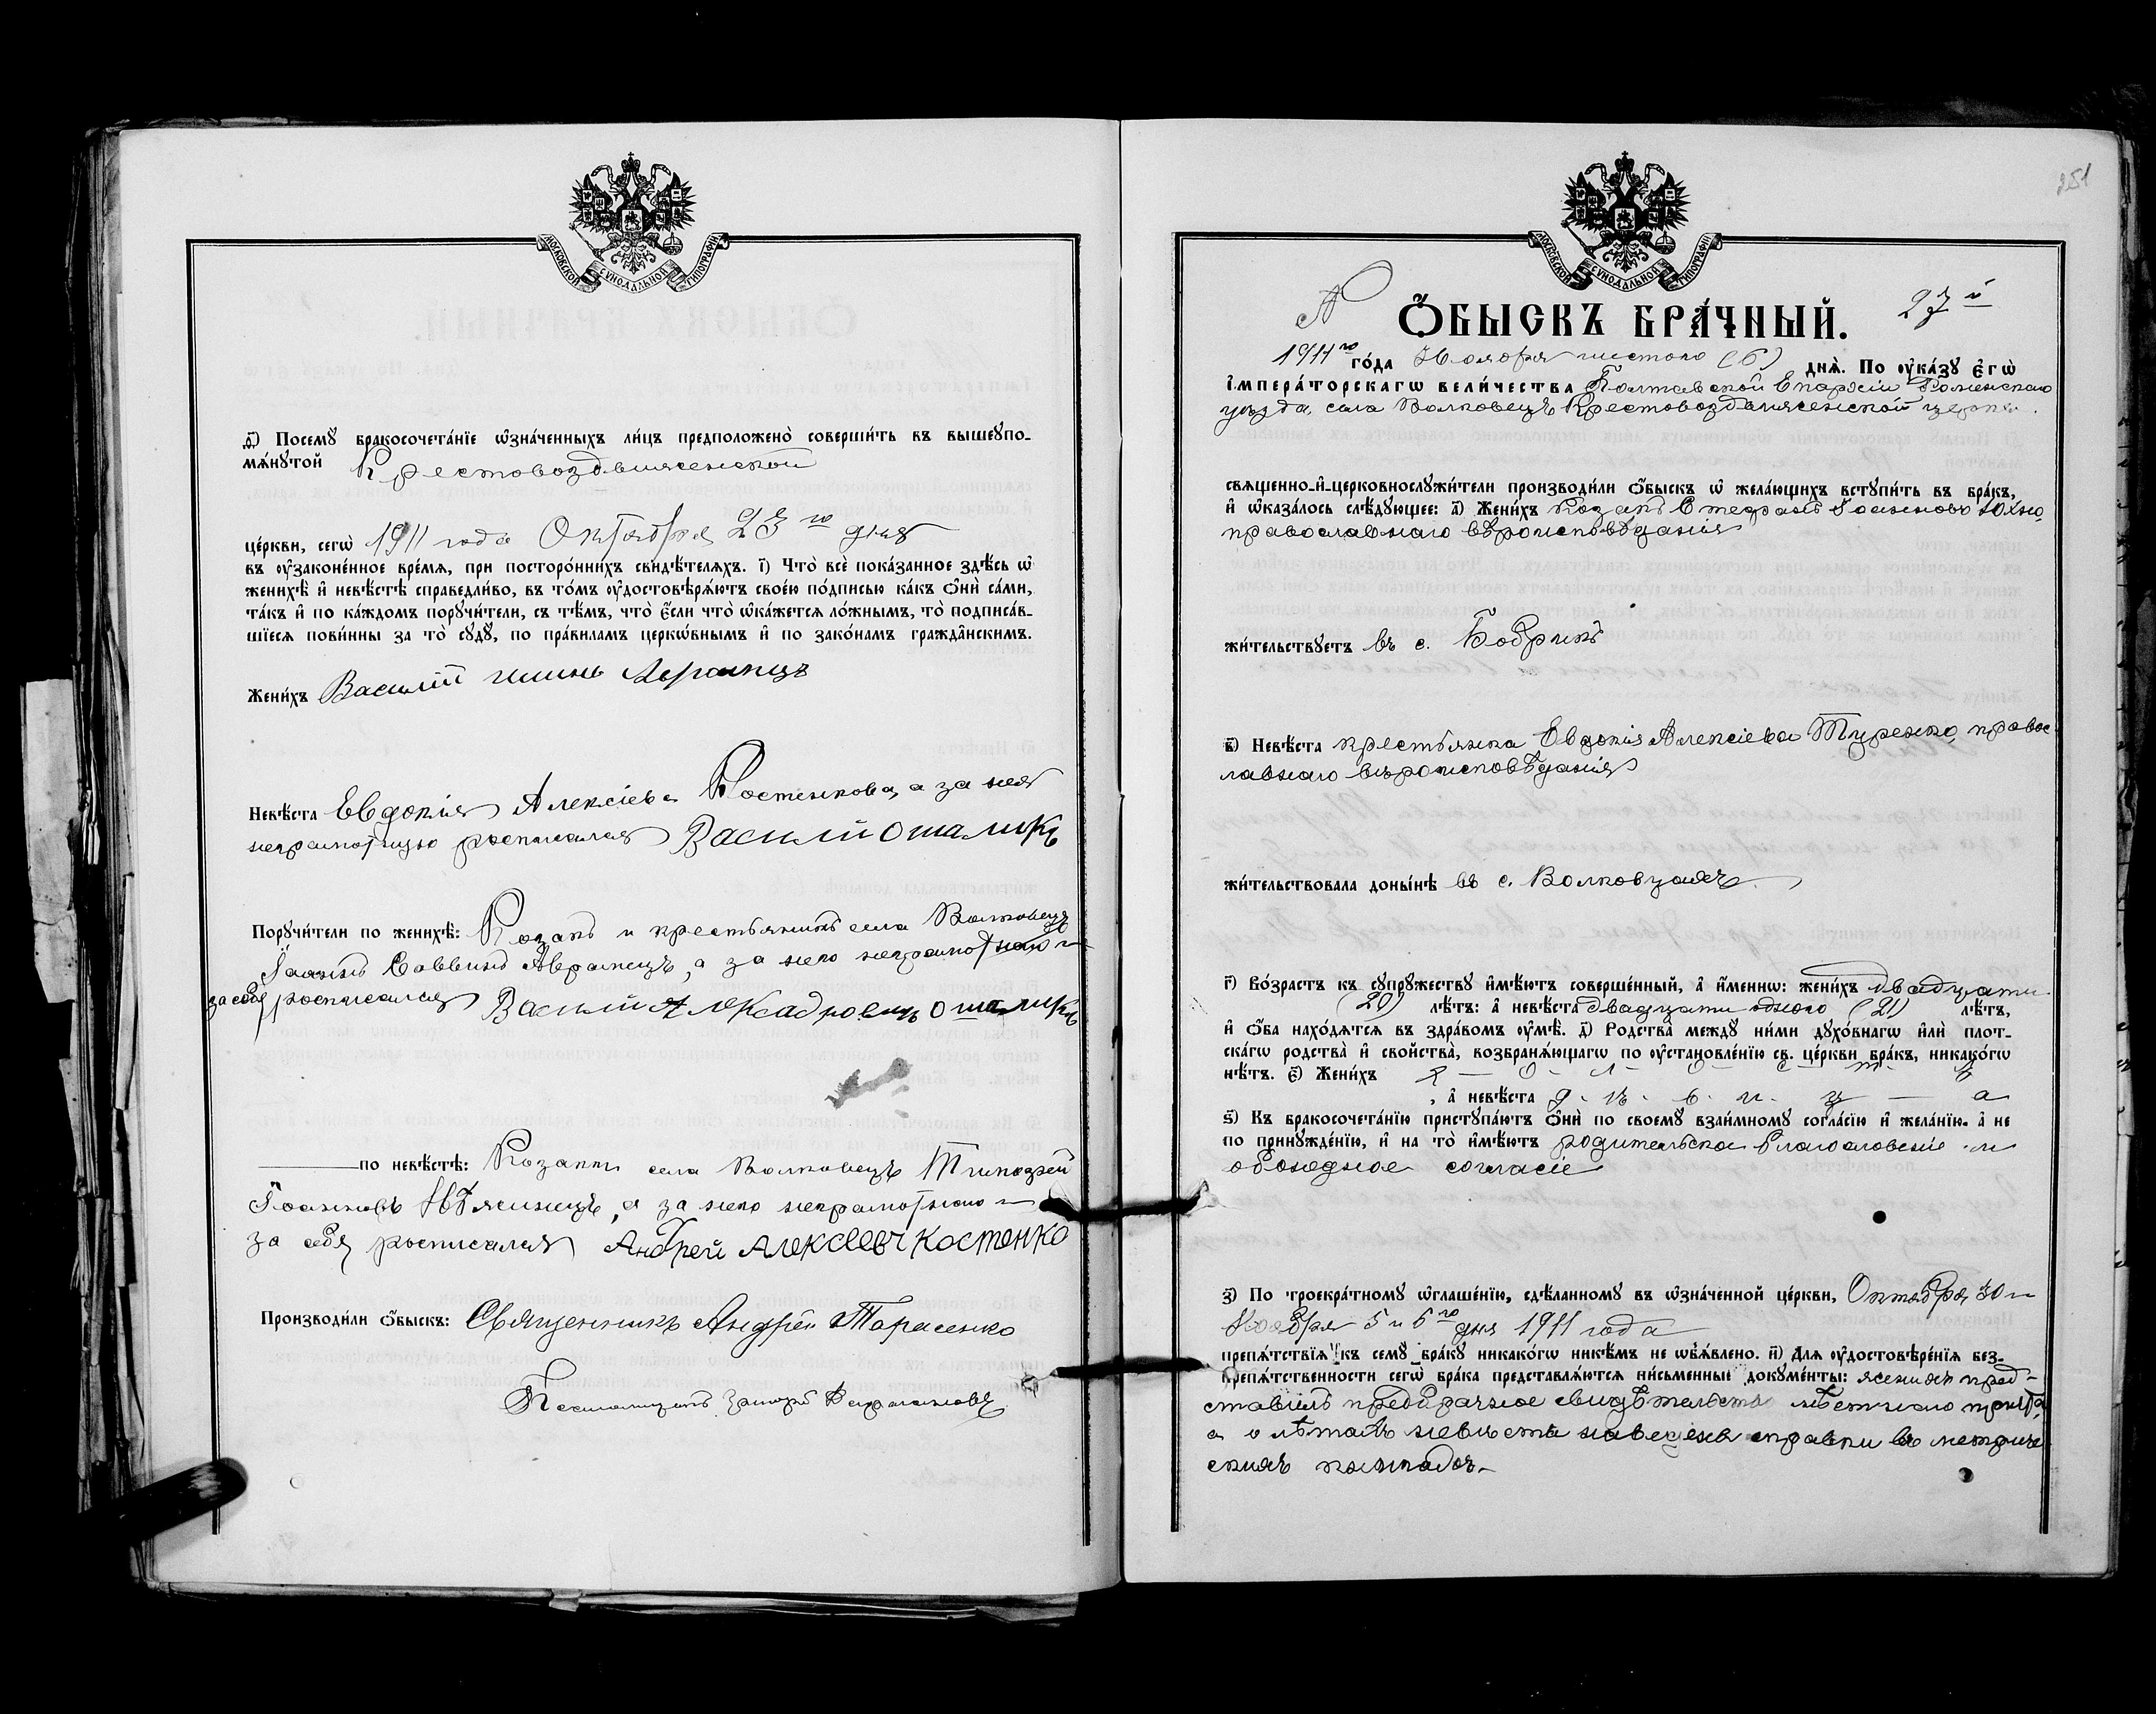 МОСКОВСКОЙ СУНОДАЛЬНОЙ ТИПОГРАФІИ
ѳ҃) Посемꙋ бракосочета́нїе ѡ҆зна́ченныхъ ли́цъ предположено̀ соверши́ть въ вышеꙋпо-
мѧ́нꙋтой Крестовоздвиженской
це́ркви, сегѡ̀ 1911 года Октября 23 го дня
въ ᲂу҆законе́нное вре́мѧ, при посторо́ннихъ свидѣ́телѧхъ. і҃) Что̀ всѐ пока́занное здѣ́сь ѡ҆
женихѣ̀ и҆ невѣ́стѣ справедли́во, въ то́мъ ᲂу҆достовѣрѧ́ютъ свое́ю по́дписью ка́къ ѻ҆нѝ са́ми,
та́къ и҆ по ка́ждомъ порꙋчи́тели, съ тѣ́мъ, что̀ є҆́сли что̀ ѡ҆ка́жетсѧ ло́жнымъ, то̀ подписа́в-
шїесѧ пови́нны за то̀ сꙋдꙋ̀, по пра́виламъ церкѡ́внымъ и҆ по зако́намъ гражда́нскимъ.
Жени́хъ Василій
Невѣ́ста Евдокія Алексіева Костенкова, а за нея
неграмотную росписался Василій Ошамикъ
Порꙋчи́тели по женихѣ̀: Козакъ и крестьянинъ села Волковецъ
Іоаннъ Саввинъ Аврамецъ, а за него неграмотнаго и
за себя росписался Василий Алексадровичъ Ошамикъ
по невѣ́стѣ: Козаки села Волковецъ Тимофей
Іоанновъ, а за него неграмотнаго и
за себя росписался Андрей Алексеевч Костенко
Производи́ли ѻ҆́быскъ: Священникъ Андрей Тарасенко
Псаломщикъ
251
МОСКОВСКОЙ СУНОДАЛЬНОЙ ТИПОГРАФІИ
№ Ѻ҆́БЫСКЪ БРА́ЧНЫЙ. 27 й
1911 го го́да Ноября шестого (6) днѧ̀. По ᲂу҆ка́зꙋ є҆гѡ̀
і҆мпера́торскагѡ вели́чества Полтавской Епархіи Роменскаго
уѣзда, села Волковецъ Крестовоздвиженской церкви.
свѧщенно-и҆-церковнослꙋжи́тели производи́ли ѻ҆́быскъ ѡ҆ жела́ющихъ встꙋпи́ть въ бра́къ,
и҆ ѡ҆каза́лось слѣ́дꙋющее: а҃) Жени́хъ Козакъ Стефанъ Іоанновъ Юхно,
православнаго вѣроисповѣданія
жи́тельствꙋетъ въ с. Бобрикъ
в҃) Невѣ́ста крестьянка Евдокія Алексіева Туренко, правос-
лавнаго вѣроисповѣданія
жи́тельствовала доны́нѣ въ с. Волковцахъ
г҃) Во́зрастъ къ сꙋпрꙋ́жествꙋ и҆мѣ́ютъ соверше́нный, а҆ и҆́меннѡ: жени́хъ двадцати
(20) лѣ́тъ: а҆ невѣ́ста двадцати одного (21) лѣ́тъ,
и҆ ѻ҆́ба нахо́дѧтсѧ въ здра́вомъ ᲂу҆мѣ̀. д҃) Родства̀ междꙋ̀ ни́ми дꙋхо́внагѡ и҆лѝ плот-
ска́гѡ родства̀ и҆ сво́йства̀, возбранѧ́ющагѡ по ᲂу҆становле́нїю св. це́ркви бра́къ, никако́гѡ
нѣ́тъ. є҃) Жени́хъ х — о — л — о — с — т — ъ
, а҆ невѣ́ста д - ѣ - в - и - ц — а
ѕ҃) Къ бракосочета́нїю пристꙋпа́ютъ ѻ҆нѝ по своемꙋ̀ взаи́мномꙋ согла́сїю и҆ жела́нїю. а҆ не
по принꙋжде́нїю, и҆ на то̀ и҆мѣ́ютъ родительское благословеніе и
обоюдное согласіе
з҃) По троекра́тномꙋ ѡ҆глаше́нїю, сдѣ́ланномꙋ въ ѡ҆зна́ченной це́ркви, Октября 30 и
Ноября 5 и 6 го дня 1911 года
препѧ́тствїѧ къ семꙋ̀ бра́кꙋ никако́гѡ никѣ́мъ не ѡ҆б̾ѧ́влено. и҃) Длѧ ᲂу҆достовѣре́нїѧ без-
препѧ́тственности сегѡ̀ бра́ка представлѧ́ютсѧ пи́сьменные докꙋме́нты: женихъ пред-
ставилъ предбрачное свидѣтельство мѣстнаго причта,
а о лѣтахъ невѣсты наведена справки въ метриче-
скихъ книгахъ.